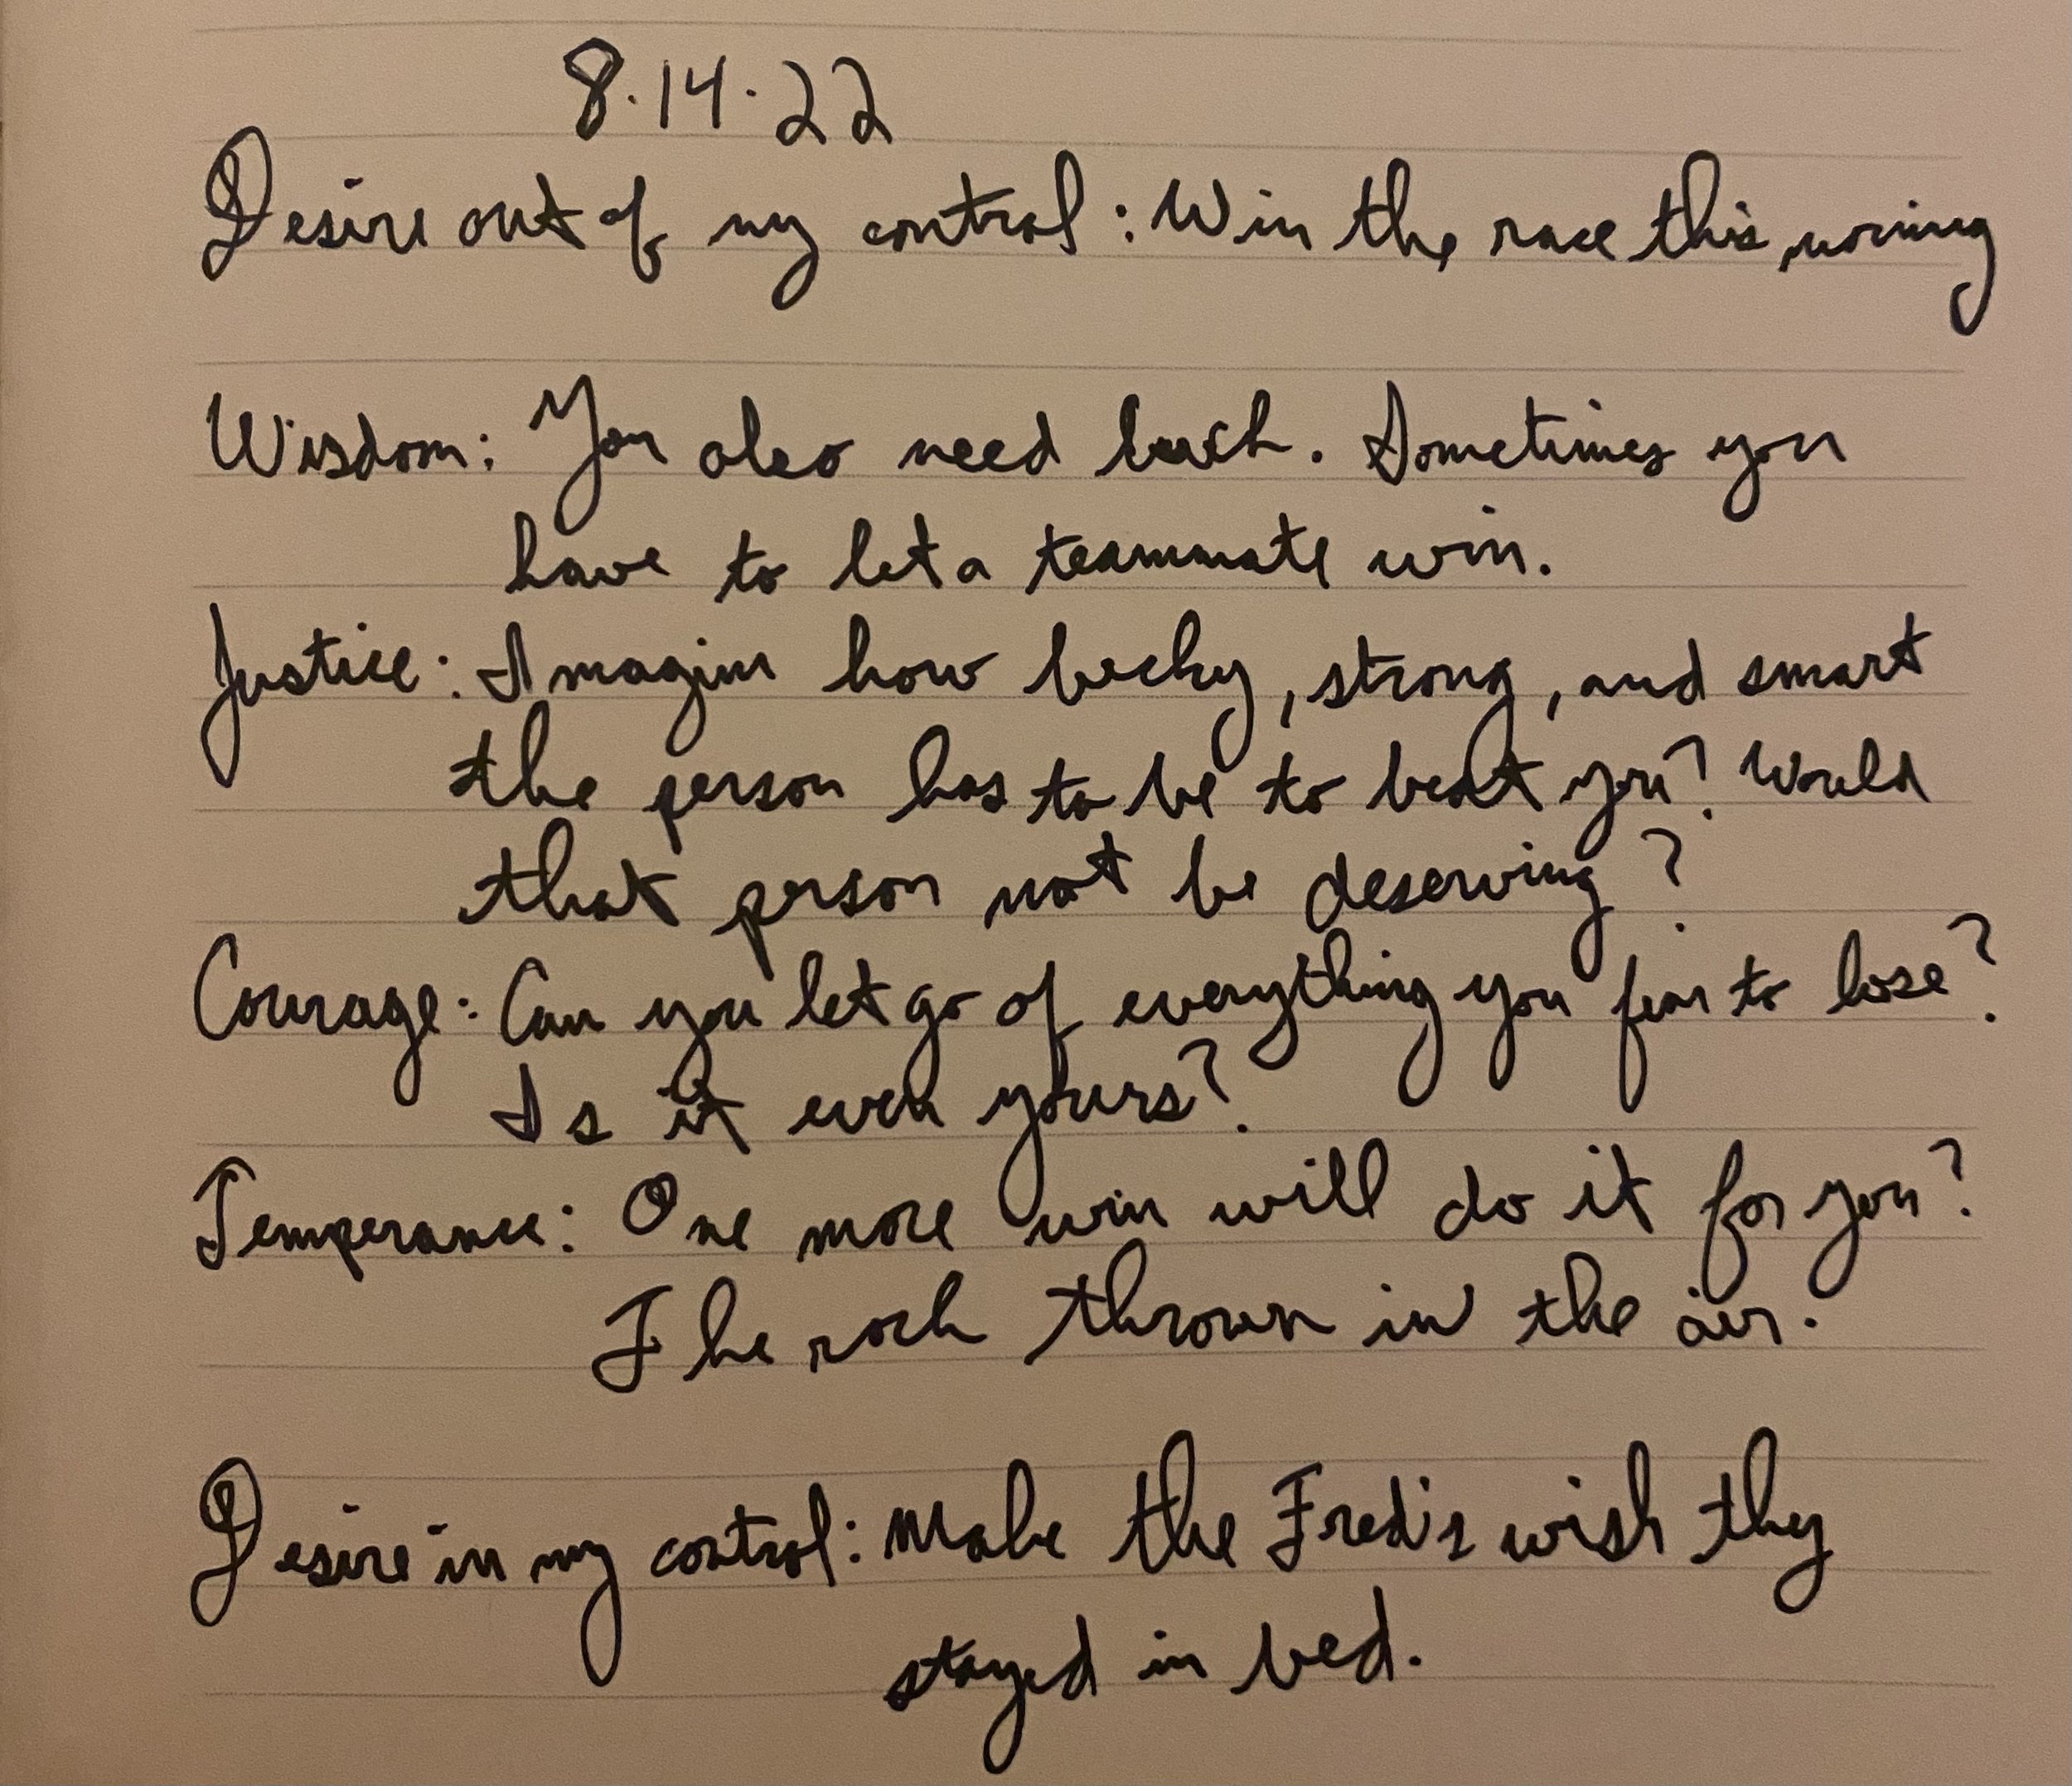 8.14.22
Desire out of my control: Win the race this morning
Wisdom: You also need luck. Sometimes you
have to let a teammate win.
Justice: Imagine how lucky, strong, and smart
the person has to be to beat you? Would
that person not be deserving?
Courage: Can you let go of everything you fear to lose?
Is it even yours?
Temperance: One more win will do it for you?
The rock thrown in the air.
Desire in my control: Make the Fred's wish they
stayed in bed.